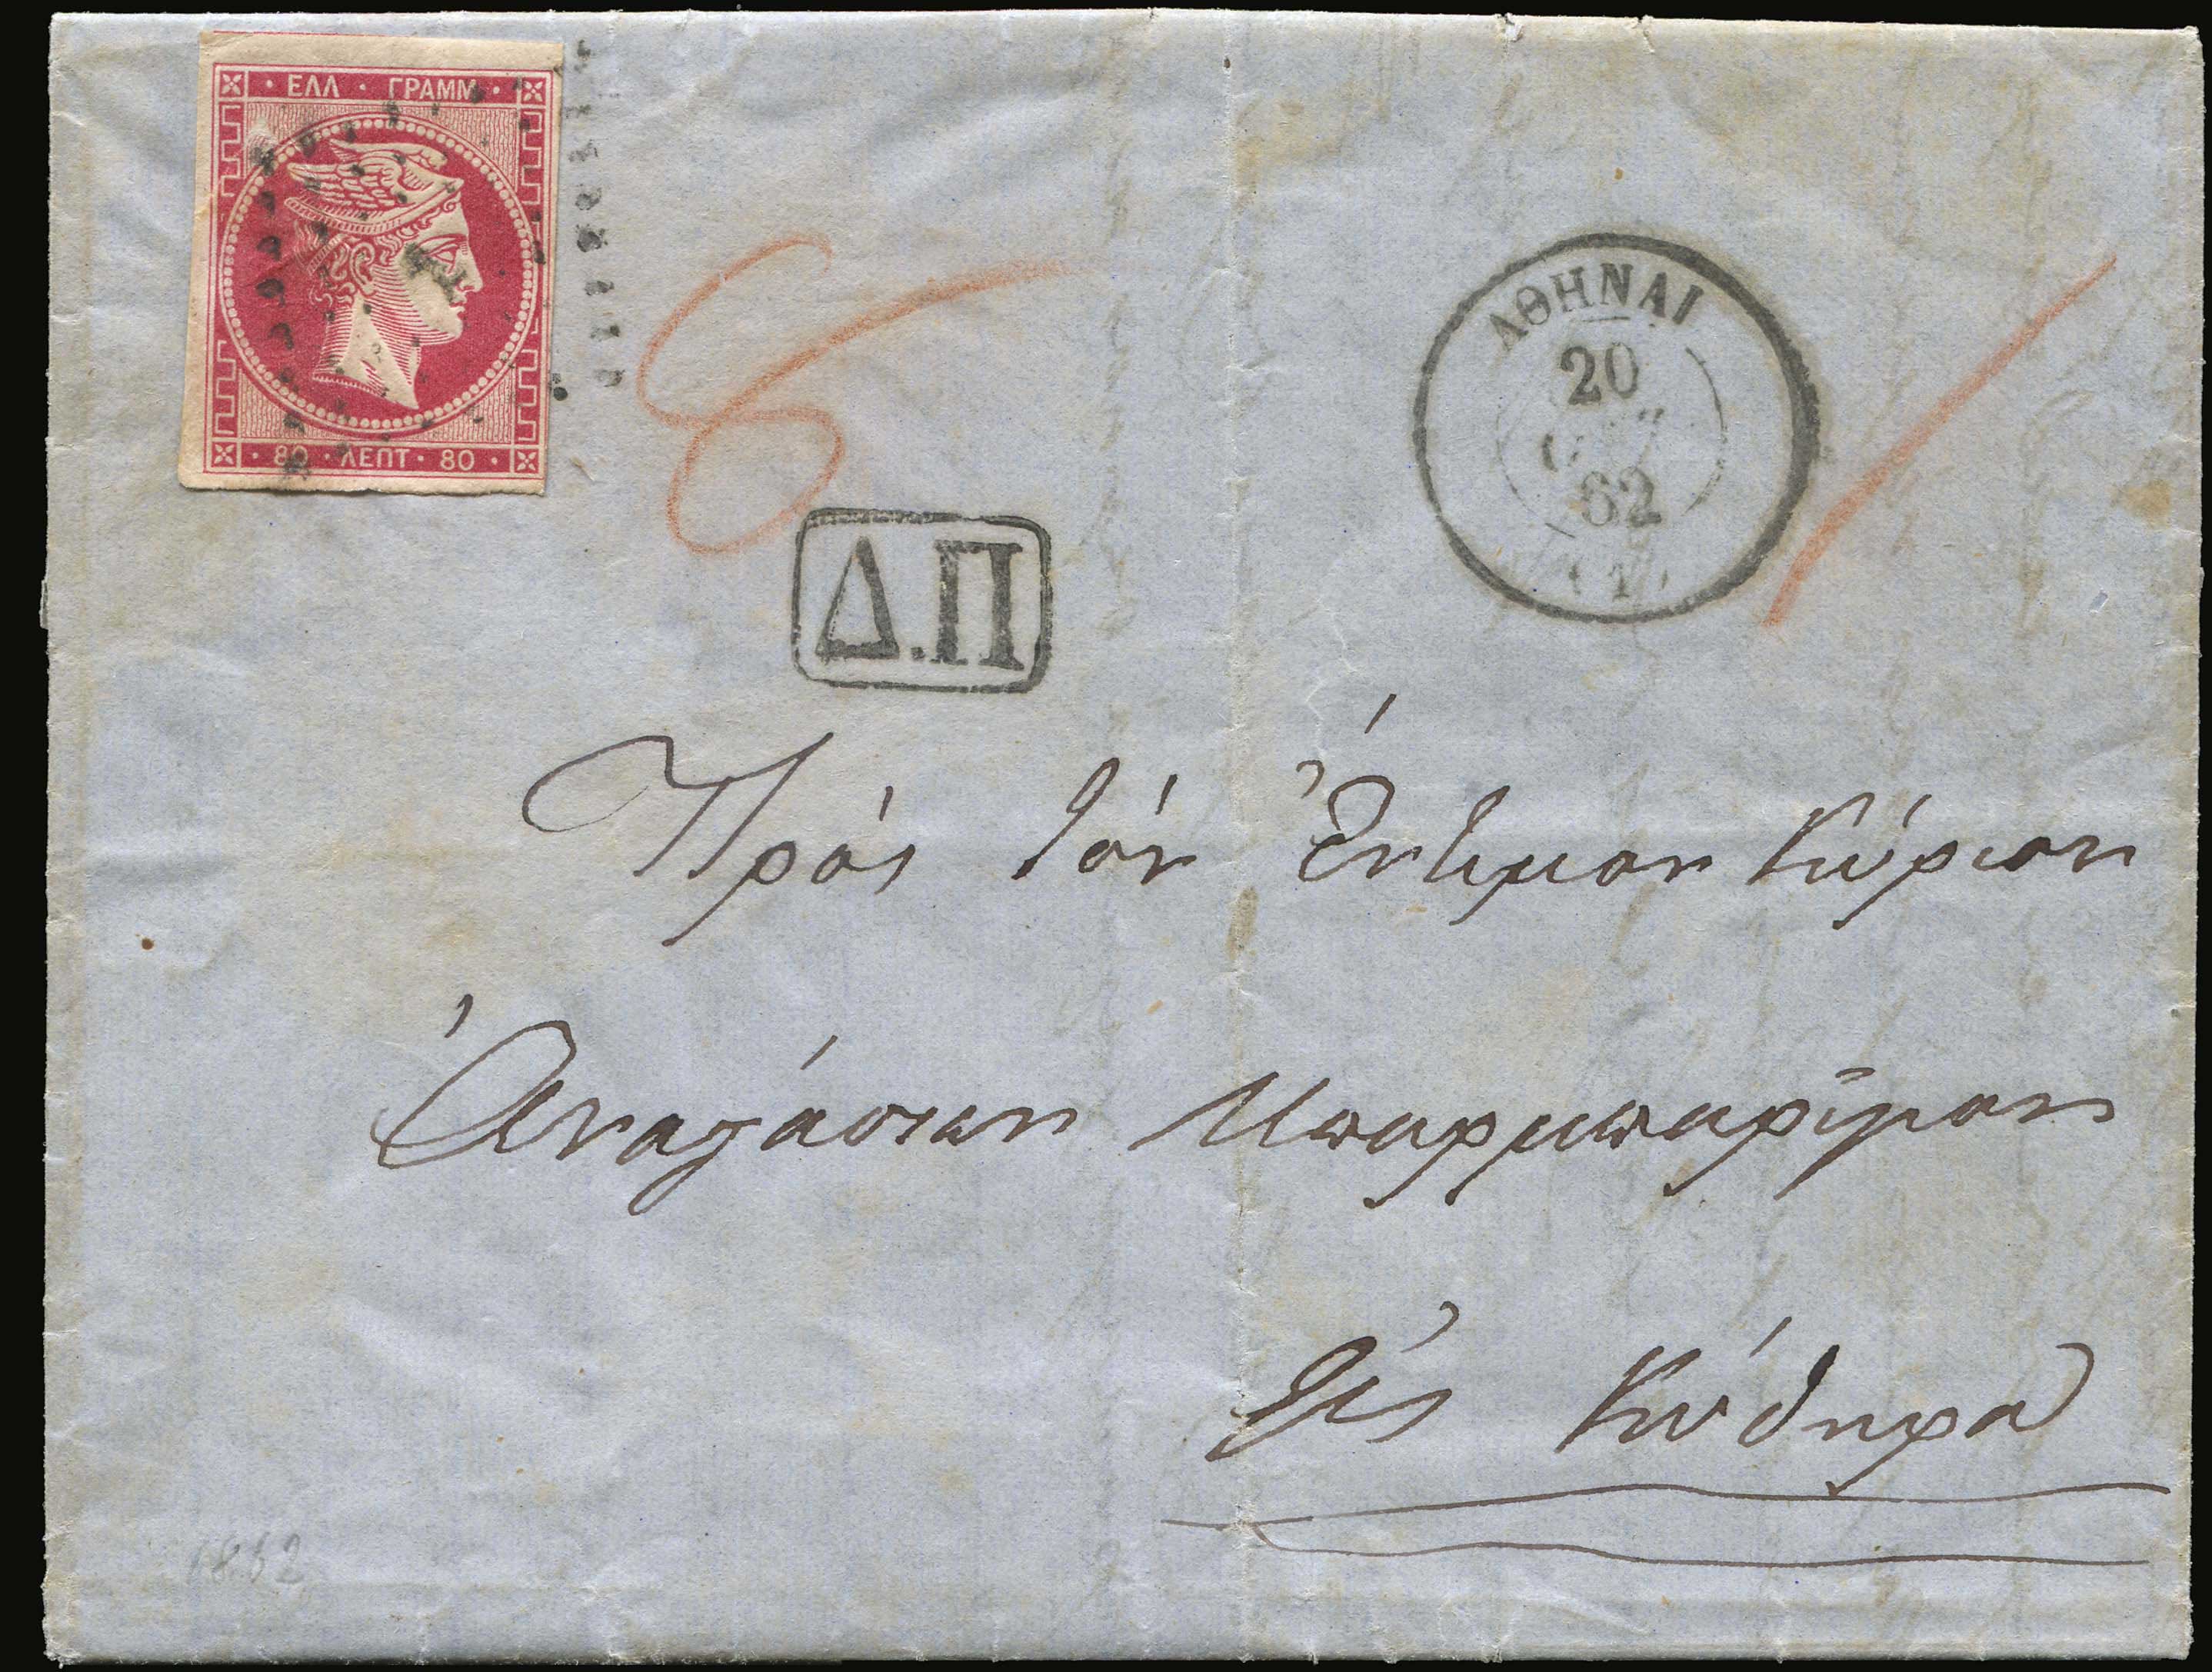 · ΕΛΛ · ΓΡΑΜΜ ·
· 80 · ΛΕΠΤ · 80 ·
ΑΘΗΝΑΙ
20
62
(1)
Δ.Π
Πρὸς Τὸν Ἔντιμον Κύριον
Ἀναγάσιον Μπαρμπαρῖγον
Εἰς Κύθηρα
1862